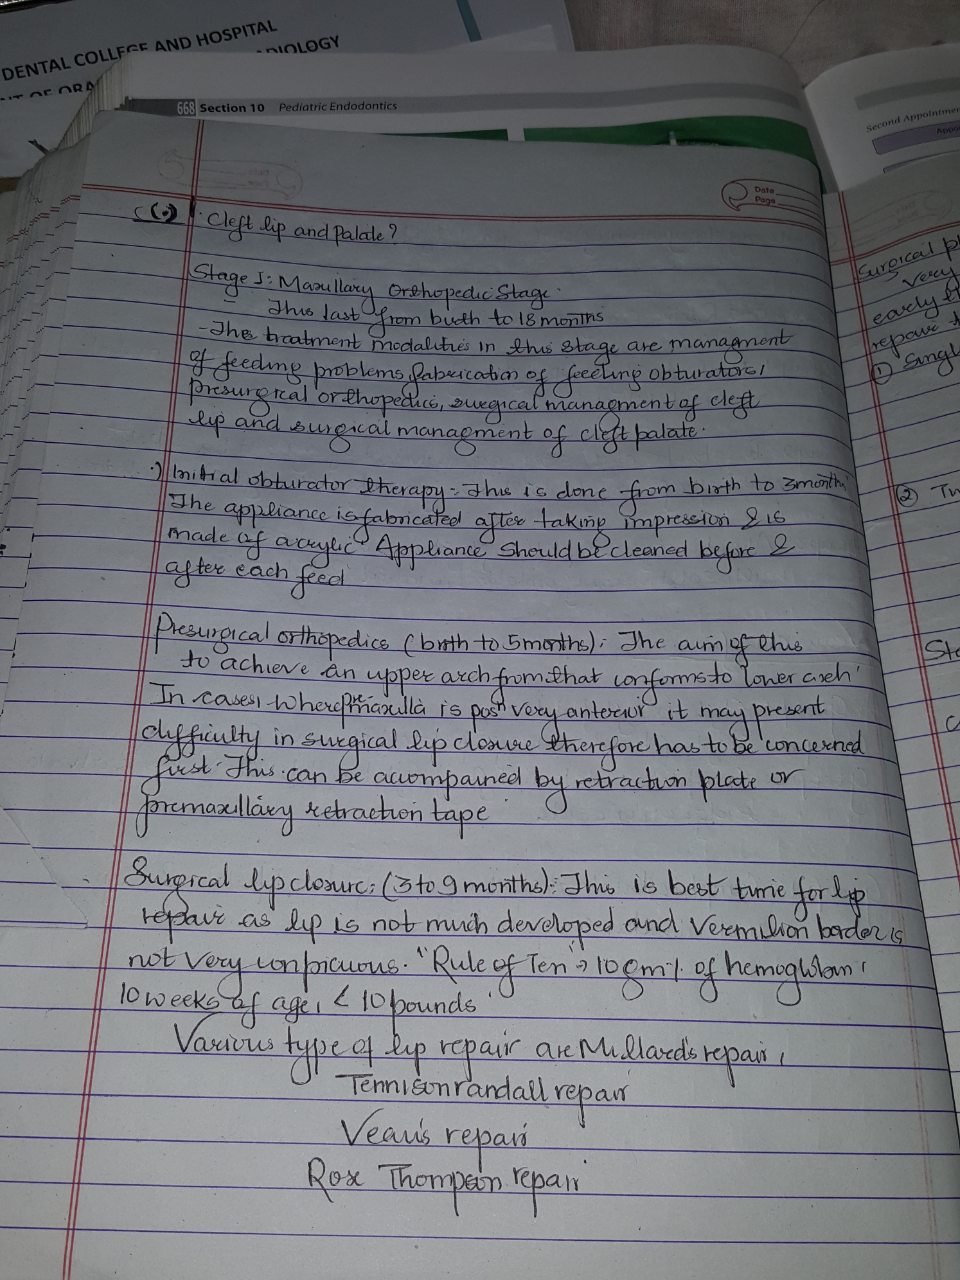 DENTAL COLLEGE AND HOSPITAL
DIOLOGY
668 Section 10 Pediatric Endodontics
Second Appointme
Appo
Date
Page
Cleft lip and Palate?
Stage I: Maxillary Orthopedic Stage.
- This last from birth to 18 months
- The treatment modalities in this stage are managment
of feeding problems, fabrication of feeling obturators,
presurgical orthopedics, surgical managment of cleft
lip and surgical managment of cleft palate.
.) Initial obturator therapy:- This is done from birth to 3month.
The appliance is fabricated after taking impression & is
made of acrylic. Appliance should be cleaned before &
after each feed
Presurgical orthopedics (birth to 5months): The aim of this
to achieve an upper arch from that conforms to lower arch.
In cases, where premaxilla is posn very anterior it may present
difficulty in surgical lip closure therefore has to be concerned
first. This can be accompained by retraction plate or
premaxillary retraction tape
Surgical lip closure: (3 to 9 months): This is best time for lip
repair as lip is not much developed and Vermilion border is
not very conpicuous. "Rule of Ten" → 10gm% of hemoglobin,
10 weeks of age, < 10 pounds.
Various type of lip repair are Millard's repair,
Tennison randall repair
Veau's repair
Rose Thompson repair
Surgical p
very
early
repair
① Singl
② Tw